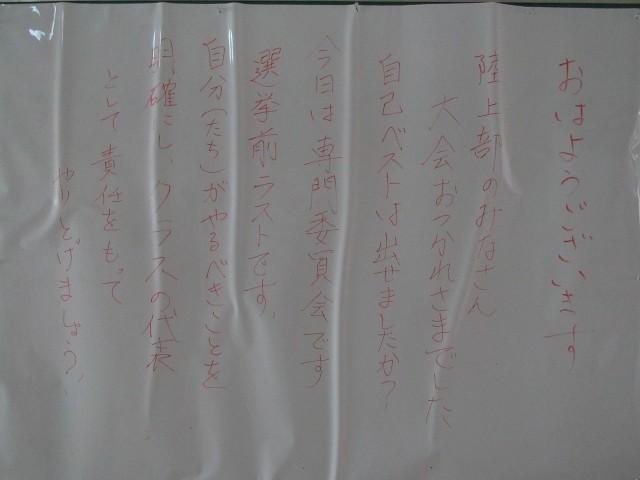 おはようございます
陸上部のみなさん
大会おつかれさまでした
自己ベストは出せましたか?
今日は専門委員会です
選挙前ラストです、
自分(たち)がやるべきことを
明確にし、クラスの代表
として責任をもって
やりとげましょう。